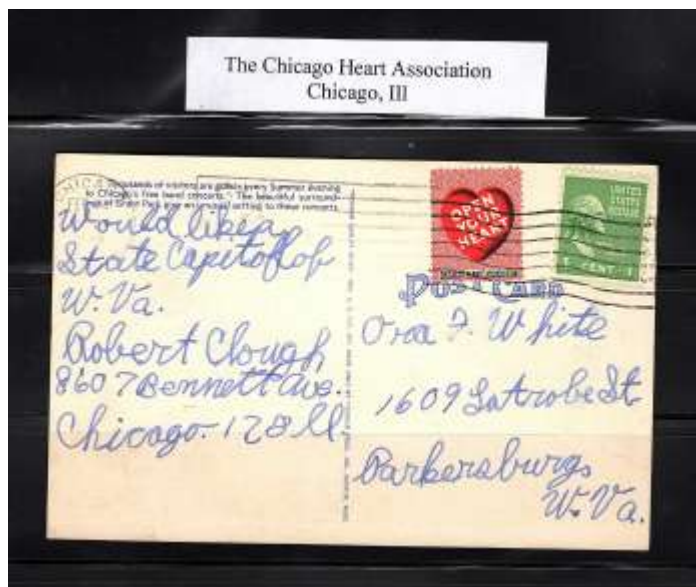 The Chicago Heart Association
Chicago, III
Thousands of visitors are gotten every Summer evening
to Chicago's free band concerts. The beautiful surround-
of Grant Park give an unusual setting to these concerts.
Would like a
State Capitol of
W. Va.
Robert Clough
8607 Bennett Ave.
Chicago. 17 Ill
OPEN
YOUR
HEART
UNITED
STATES
POSTAGE
1 CENT 1
POST CARD
Ora F. White
1609 Latrobe St
Parkersburg
W. Va.